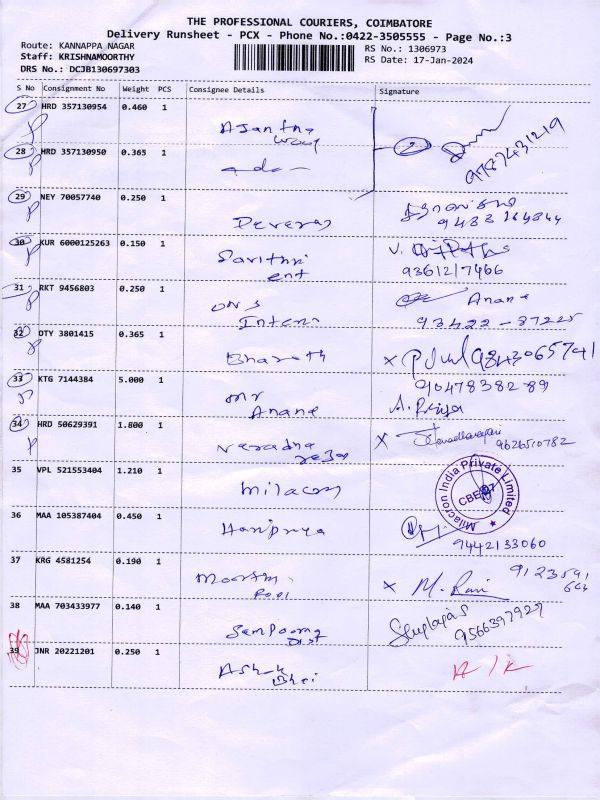 THE PROFESSIONAL COURIERS, COIMBATORE
Delivery Runsheet - PCX - Phone No.:0422-3505555 - Page No.:3
Route: KANNAPPA NAGAR
RS No.: 1306973
Staff: KRISHNAMOORTHY
RS Date: 17-Jan-2024
DRS No.: DCJB130697303
S No Consignment No Weight PCS Consignee Details Signature
27 HRD 357130954 0.460 1
Ajantha
9787431219
28 HRD 357130950 0.365 1
-do-
29 NEY 70057740 0.250 1
Devaraj
30 KUR 6000125263 0.150 1
Savithri
ent
9361217466
31 RKT 9456803 0.250 1
Anand
Intern
93422-87225
32 DTY 3801415 0.365 1
Bharath
x 9843065741
33 KTG 7144384 5.000 1
9047838289
Mr
Anand
A. Priya
34 HRD 50629391 1.800 1
Varadha
x 9626510782
35 VPL 521553404 1.210 1
Milacron
Milacron India Private Limited
36 MAA 105387404 0.450 1
Haripriya
9442133060
37 KRG 4581254 0.190 1
Moorthi
x M. Ravi
38 MAA 703433977 0.140 1
Sampoorna
Dist
9566397929
39 JNR 20221201 0.250 1
Ashok
Bhai